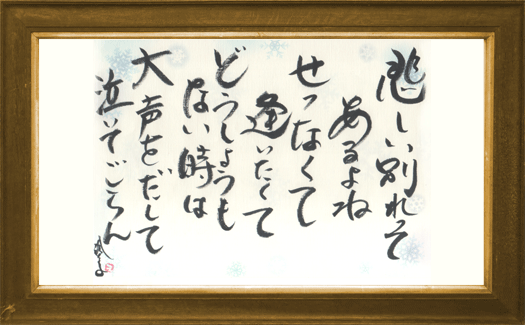 悲しい別れって
あるよね
せつなくて
逢いたくて
どうしようも
ない時は
大声をだして
泣いてごらん